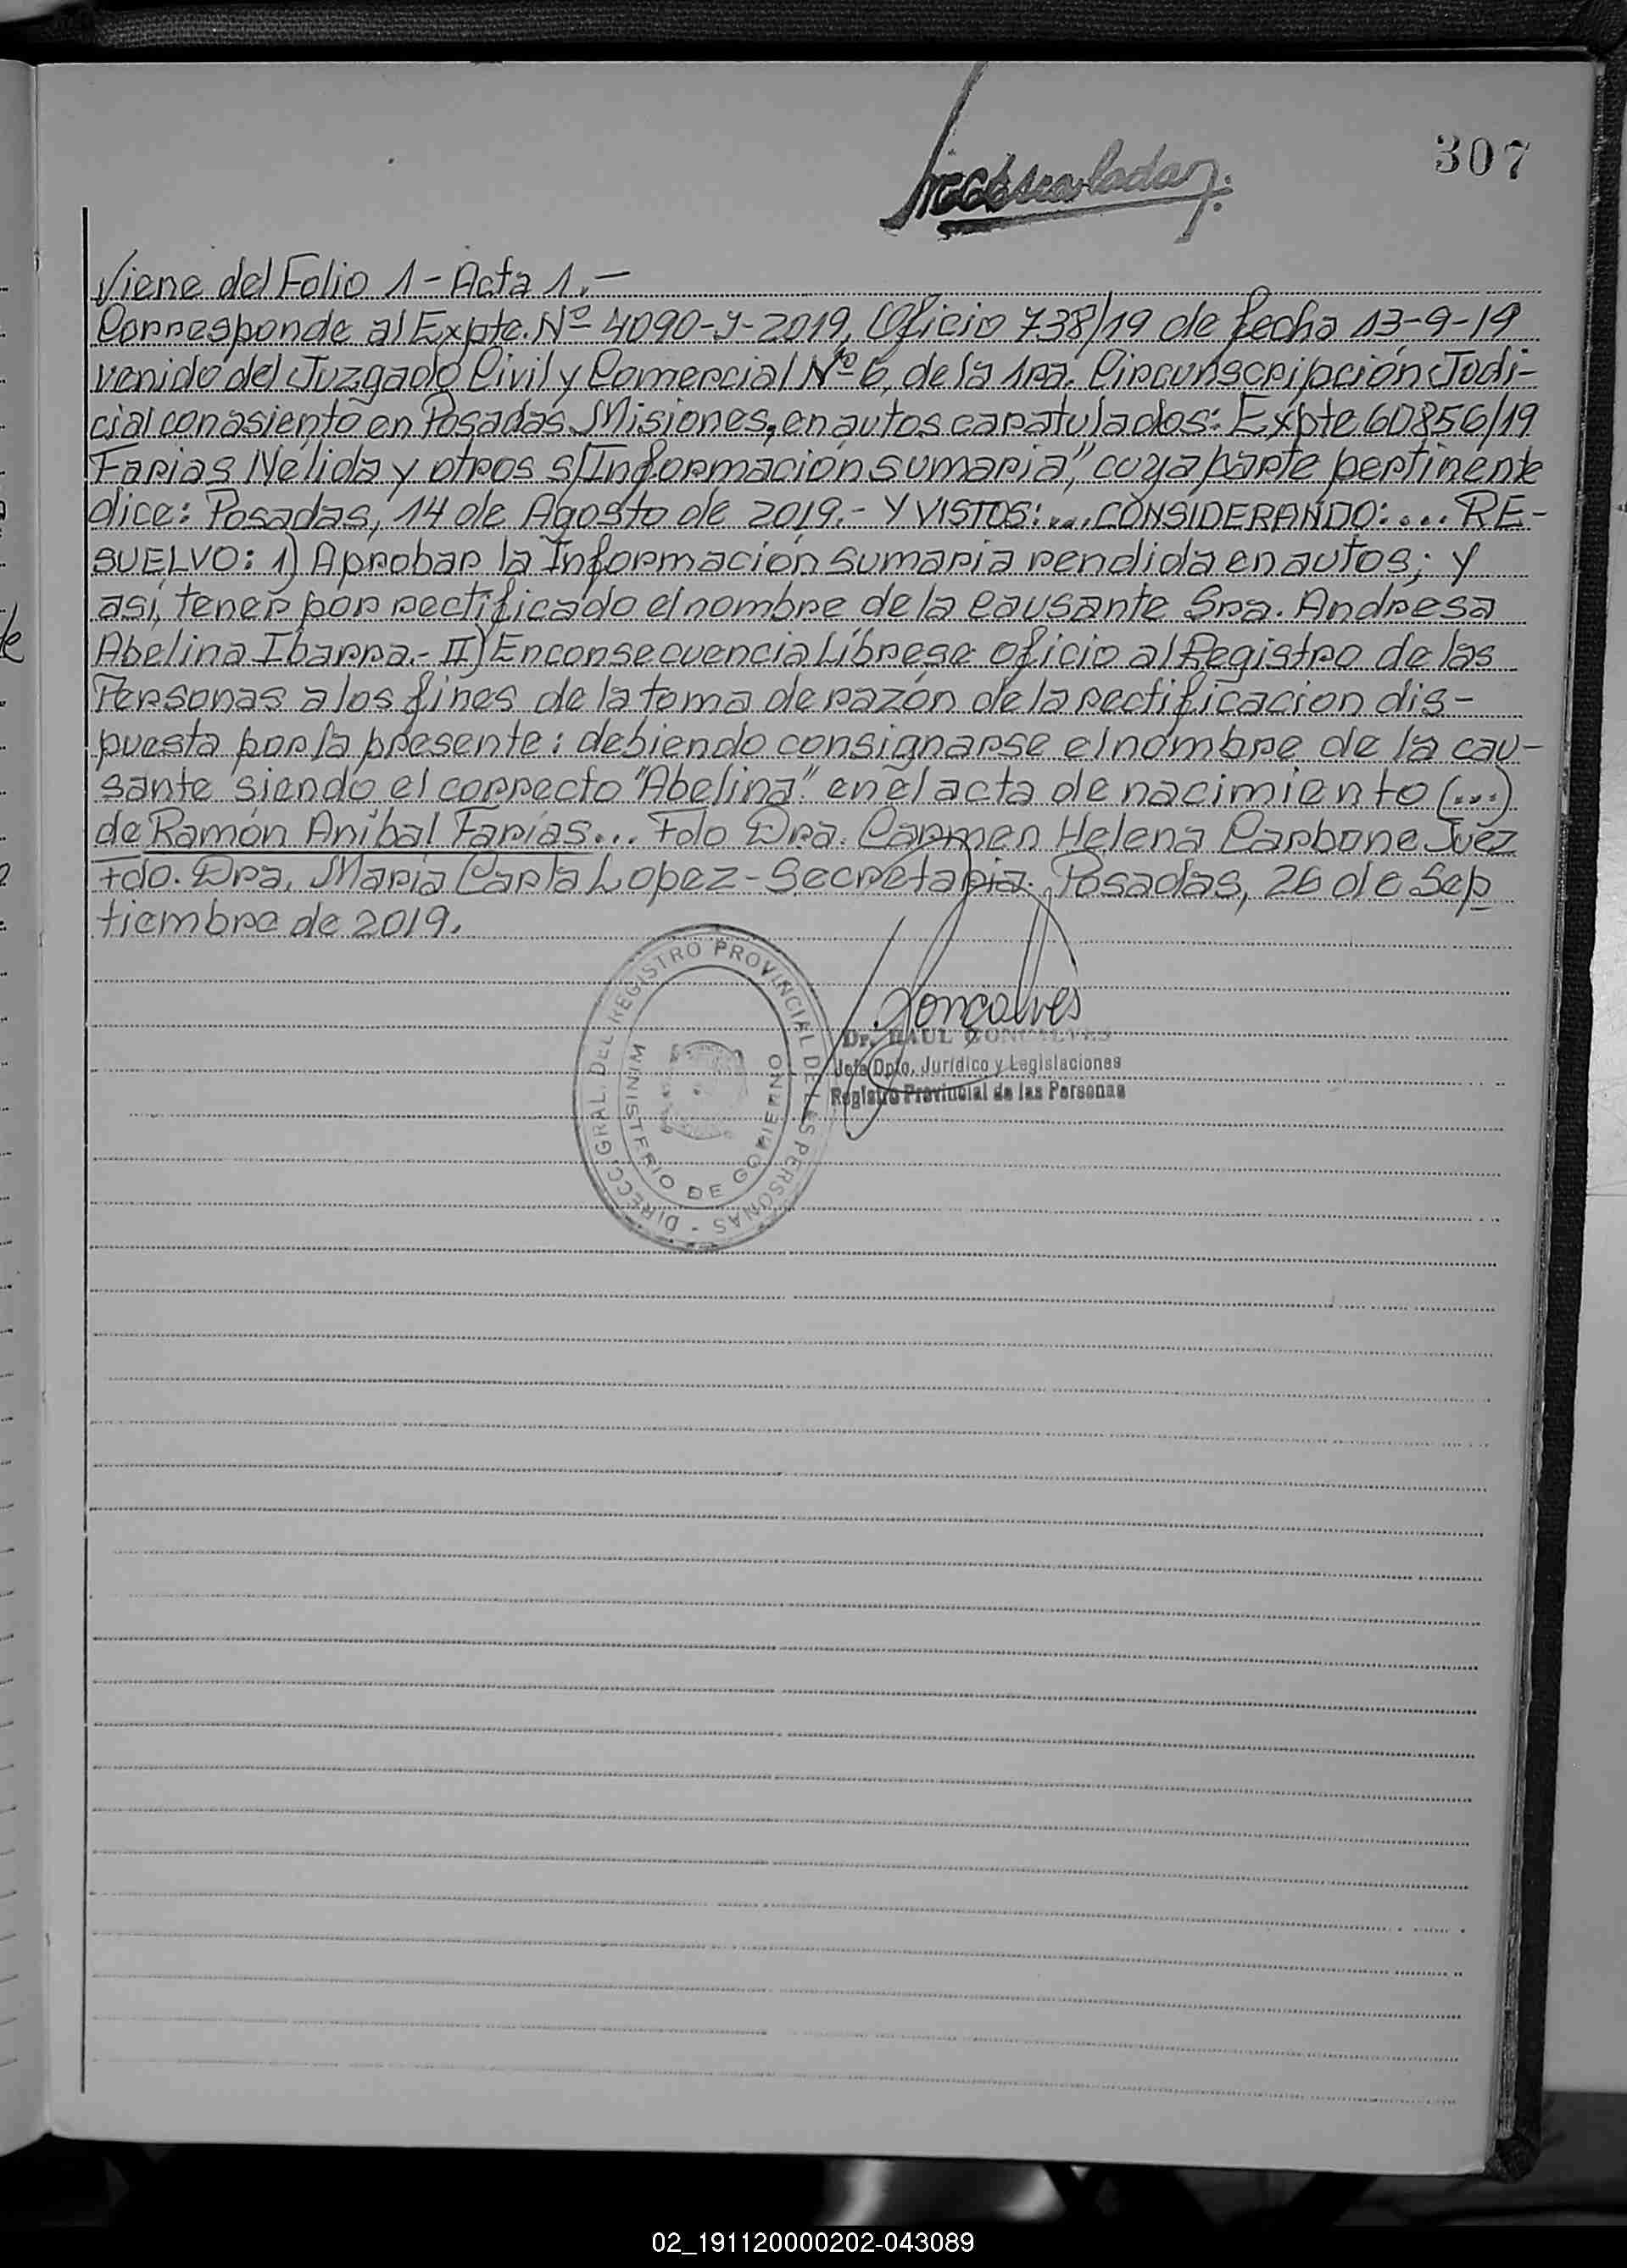 307
Viene del Folio 1 - Acta 1.-
Corresponde al Expte. Nº 4090-J-2019, Oficio 738/19 de fecha 13-9-19
venido del Juzgado Civil y Comercial Nº 6, de la 1ra. Circunscripción Judi-
cial con asiento en Posadas Misiones, en autos caratulados: Expte 60856/19
Farias Nélida y otros s/Información sumaria", cuya parte pertinente
dice: Posadas, 14 de Agosto de 2019.- Y VISTOS:.... CONSIDERANDO:.... RE-
SUELVO: 1) Aprobar la Información sumaria rendida en autos; y
así, tener por rectificado el nombre de la causante Sra. Andresa
Abelina Ibarra.- II) En consecuencia Líbrese oficio al Registro de las
Personas a los fines de la toma de razón de la rectificacion dis-
puesta por la presente: debiendo consignarse el nombre de la cau-
sante siendo el correcto "Abelina" en el acta de nacimiento (...)
de Ramón Aníbal Farías... Fdo Dra. Carmen Helena Carbone Juez
Fdo. Dra. María Carla Lopez - Secretaria. Posadas, 26 de Sep
tiembre de 2019.
DIRECC. GRAL. DEL REGISTRO PROVINCIAL DE LAS PERSONAS -
MINISTERIO DE GOBIERNO
Gonçalves
Dr. RAUL GONCALVES
Jefe Dpto. Jurídico y Legislaciones
Registro Provincial de las Personas
02_191120000202-043089